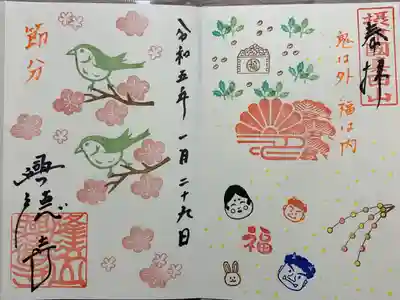 奉拝
鬼は外 福は内
福
福
令和五年 一月二十九日
節分
興徳寺